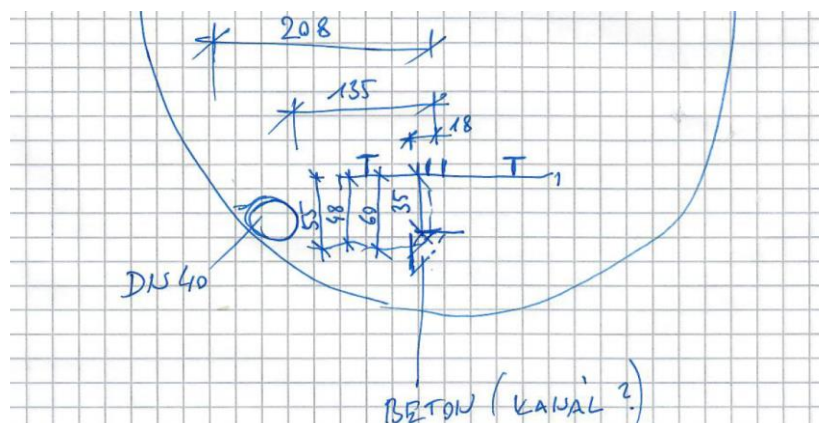 208
135
18
T T
55 48 60 35
DN 40
BETON (KANÁL?)